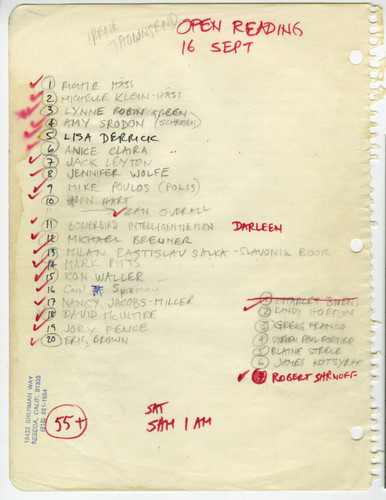 IRENE
TAOWNSEND
OPEN READING
16 SEPT
1 RICHIE HÄSS
2 MICHELLE KLEIN-HÄSS
3 LYNNE ROBIN GREEN
4 AMY SRODON
5 LISA DERRICK
6 ANICE CLAIRA
7 JACK LEYTON
8 JENNIFER WOLFE
9 MIKE POULOS (POLIS)
10 JOHN HART
ZAN OVERALL
11 BOWERBIRD INTELLIGENTLEMAN DARLEEN
12 MICHAEL BREUNER
13 MILAN RASTISLAV SALKA-SLAVONIK BOOR
14 MARK PITTS
15 RON WALLER
16 Carl
17 NANCY JACOBS-MILLER
18 DAVID MCINTIRE
19 JORY FENCE
20 ERIC BROWN
1 CHARLES
2 RANDY HORTON
3 GREGG FRANCO
4 STEVEN PAUL FORTIER
5 BLAINE STEELE
6 JAMES KOTSYBAR
7 ROBERT SARNOFF
18420 SHERMAN WAY
RESEDA, CALIF. 91335
(213) 881-1654
55+
SAT
5AM 1 AM